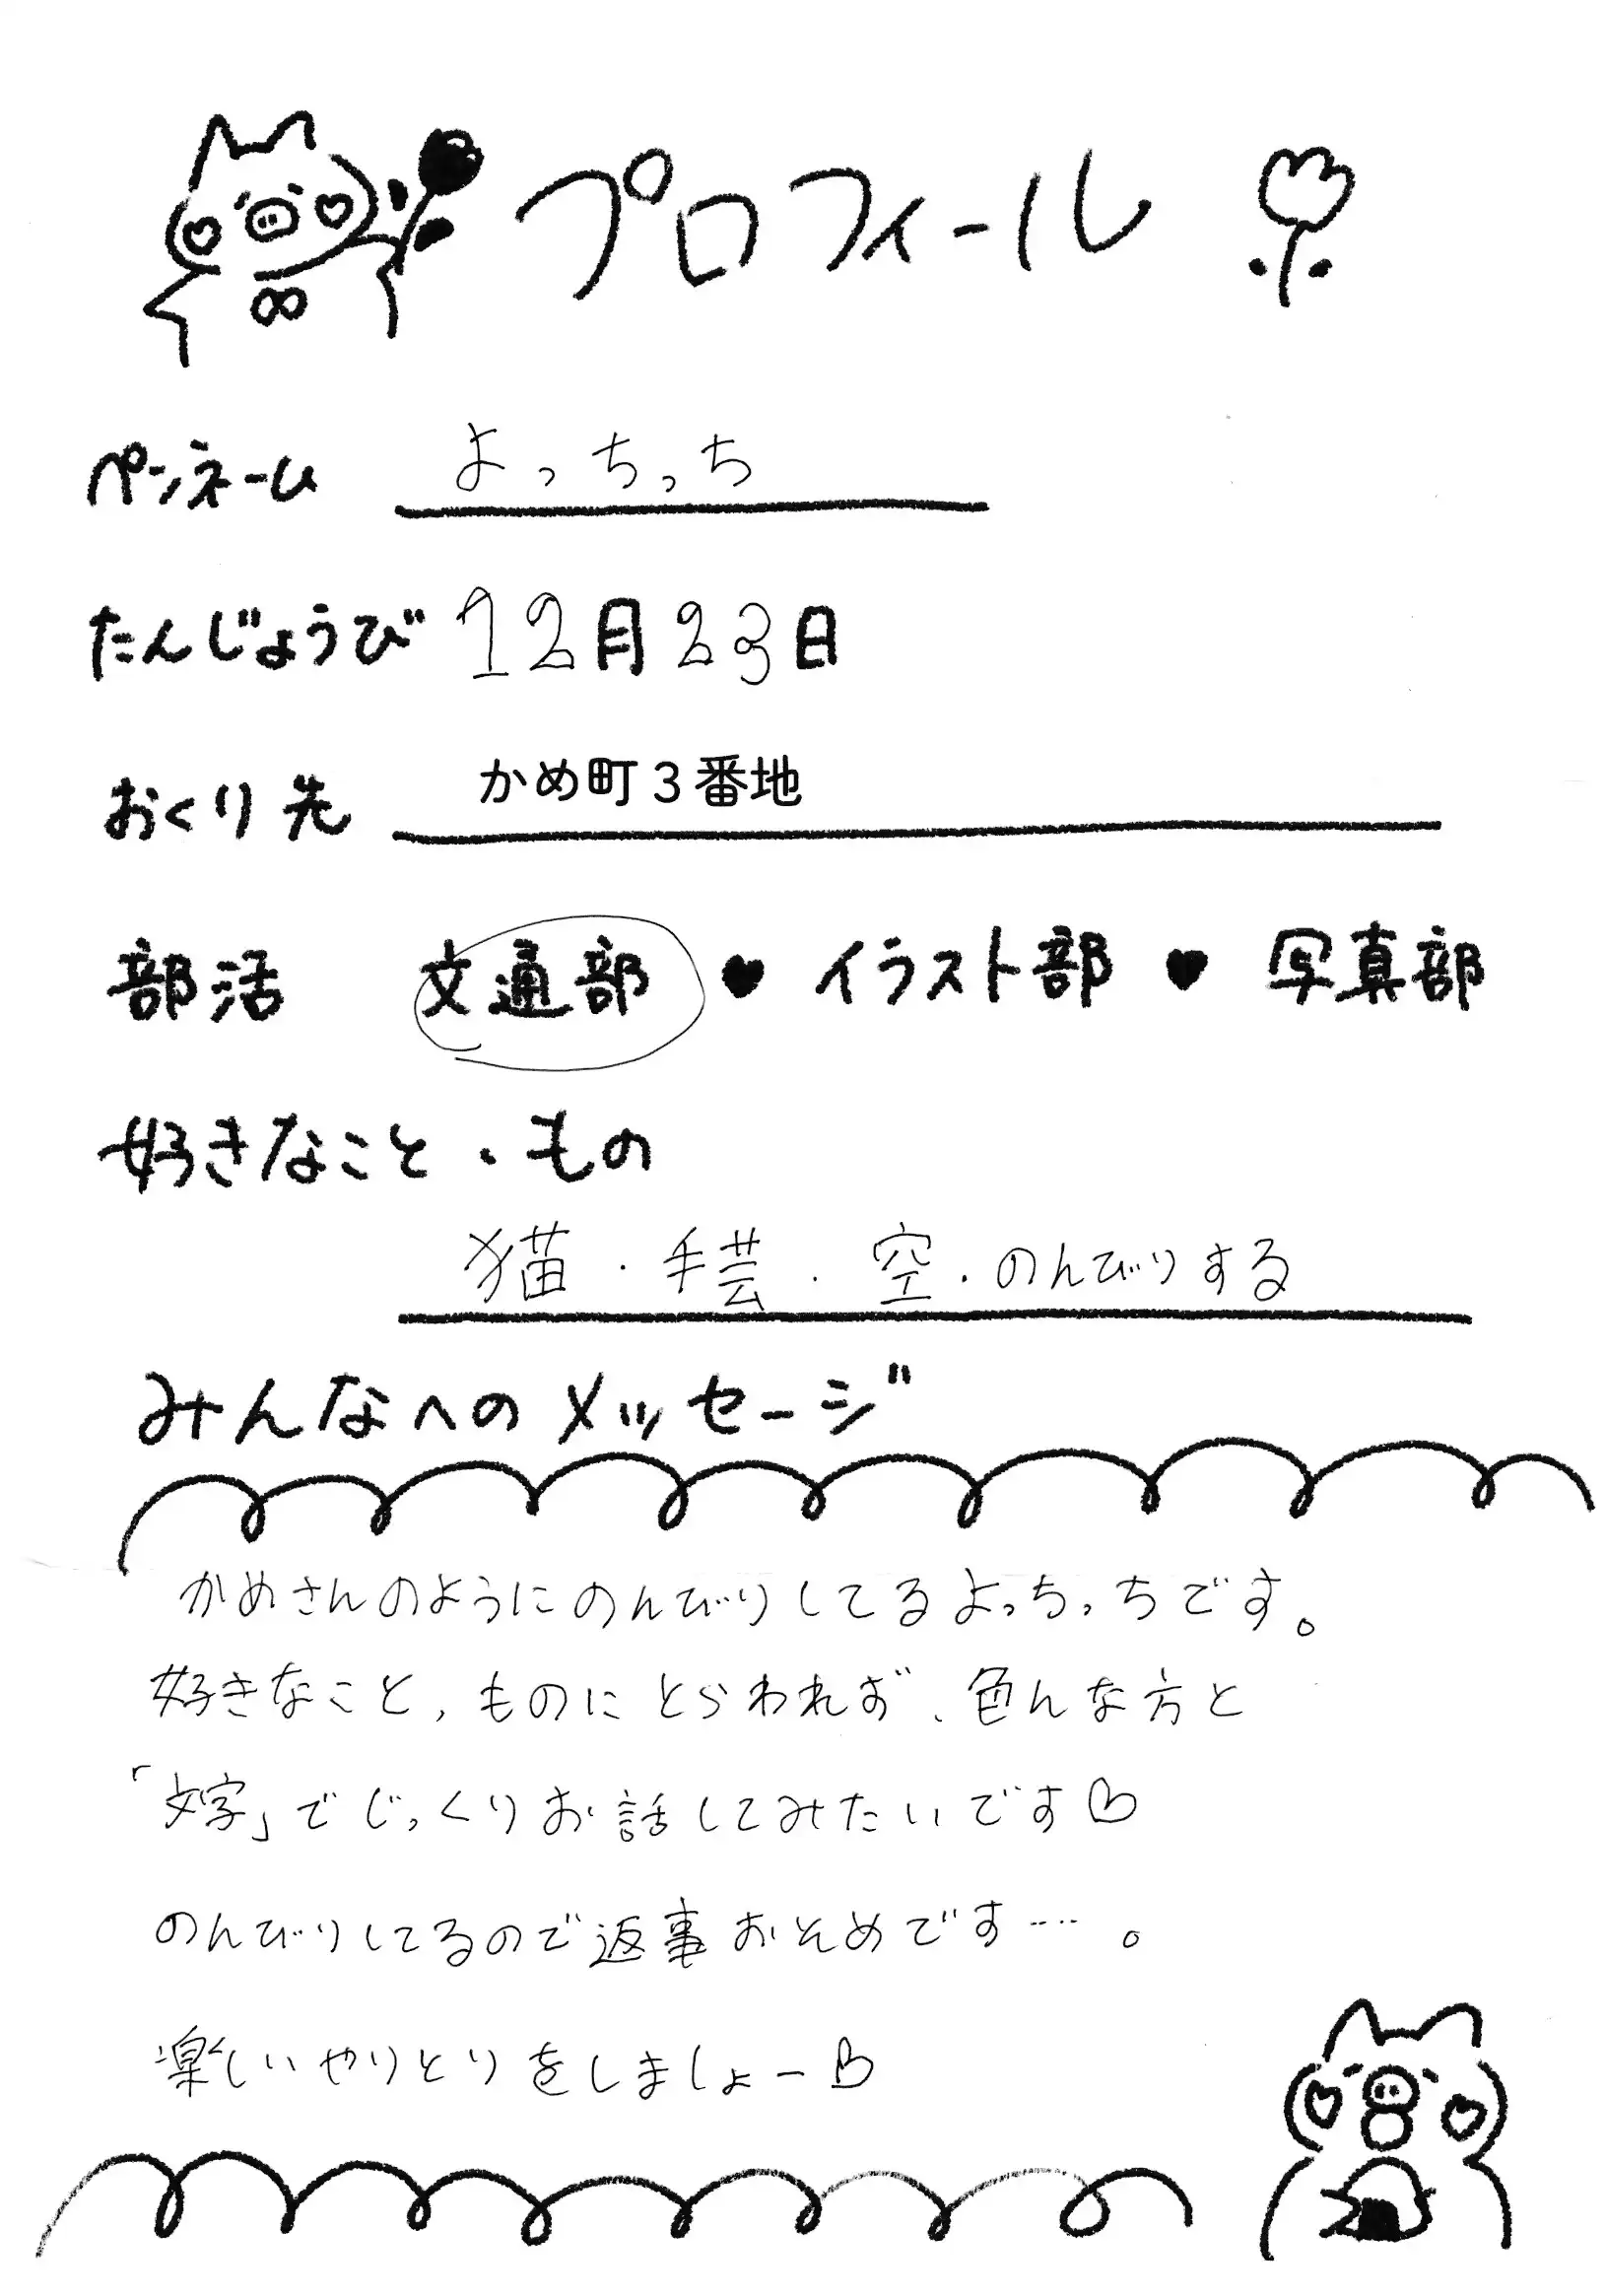 プロフィール
ペンネーム よっちっち
たんじょうび 12月23日
おくり先 かめ町3番地
部活 文通部 ♥ イラスト部 ♥ 写真部
好きなこと・もの
猫・手芸・空・のんびりする
みんなへのメッセージ
かめさんのようにのんびりしてるよっちっちです。
好きなこと、ものにとらわれず、色んな方と
「文字」でじっくりお話してみたいです♡
のんびりしてるので返事おそめです……。
楽しいやりとりをしましょー♡